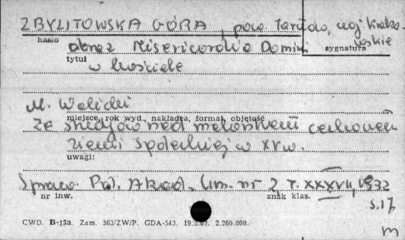 ZBYLITOWSKA GÓRA, pow. Tarnów, woj. krakowskie
hasło
sygnatura
obraz Misericordia Domini
tytuł
w kościele
M. Walicki
miejsce, rok wyd., nakładca, format, objętość
Ze studjów nad malarstwem cechowem
ziemi Sądeckiej w XV w.
uwagi:
Spraw. Pol. Akad. Um. nr 2 T. XXXVII, 1932
nr inw.
znak klas.
s. 17
CWD. B-153. Zam. 363/ZW/P. GDA-543. 2.200.000.
m